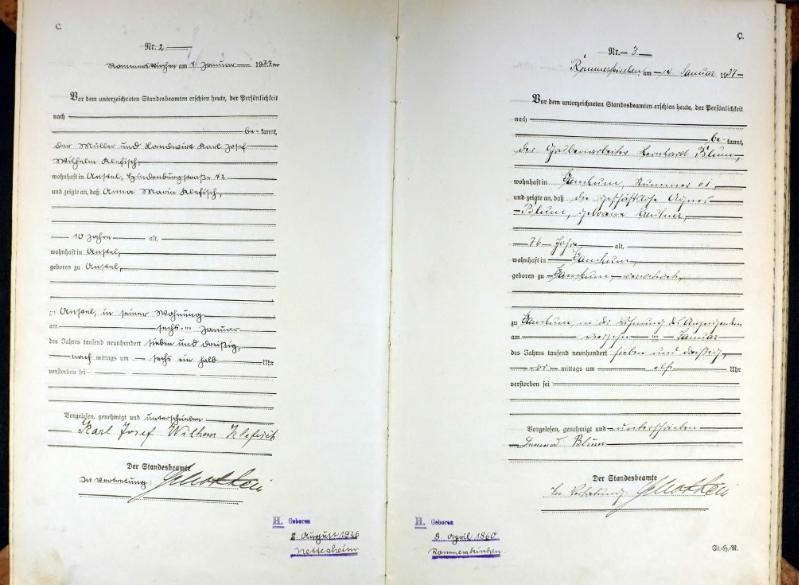 C.
Nr. 2
Rommerskirchen am 7. Januar 1937
Vor dem unterzeichneten Standesbeamten erschien heute, der Persönlichkeit
nach
be- kannt,
der Müller und Landwirt Karl Josef
Wilhelm Klefisch,
wohnhaft in Anstel, Hindenburgstraße 42
und zeigte an, daß Anna Maria Klefisch,
10 Jahre alt,
wohnhaft in Anstel,
geboren zu Anstel,
zu Anstel, in seiner Wohnung
am sechsten Januar
des Jahres tausend neunhundert sieben und dreißig,
nach mittags um sechs ein halb Uhr
verstorben sei
Vorgelesen, genehmigt und unterschrieben
Karl Josef Wilhem Klefisch
Der Standesbeamte
In Vertretung
H. Geboren
August 1926
Nettesheim
C.
Nr. 3
Rommerskirchen, am 14. Januar 1937
Vor dem unterzeichneten Standesbeamten erschien heute, der Persönlichkeit
nach
be- kannt,
der Grubenarbeiter Bernhard Blum,
wohnhaft in Nummer 61,
und zeigte an, daß die Agnes
Blum, geborene
76 Jahre alt,
wohnhaft in
geboren zu
zu in der Wohnung des Anzeigenden
am vierzehn ten Januar
des Jahres tausend neunhundert sieben und dreißig,
vor mittags um elf Uhr
verstorben sei
Vorgelesen, genehmigt und unterschrieben
Blum
Der Standesbeamte
In Vertretung
H. Geboren
8. April 1860
Rommerskirchen
St.-H.-R.